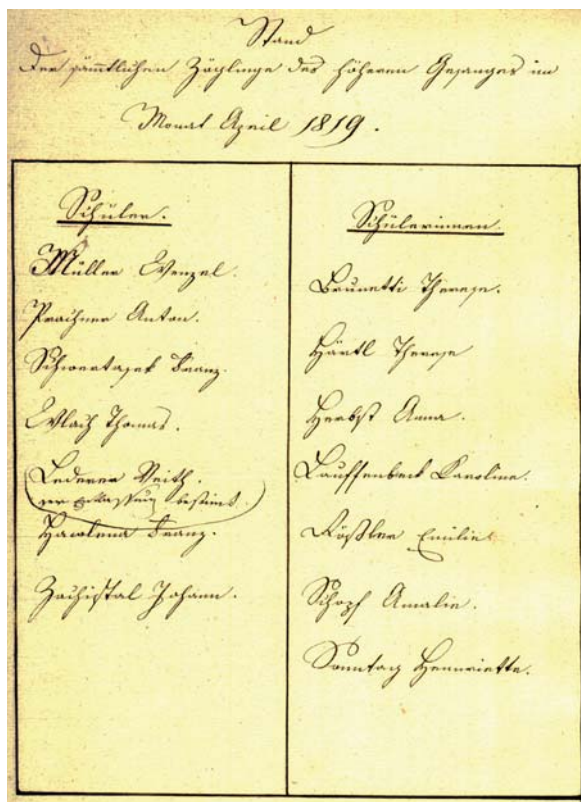 Stand
Der sämmtlichen Zöglinge des höheren Gesanges im
Monat April 1819.
Schüler.
Müller Wenzel.
Prachner Anton.
Schwertasek Franz.
Wlach Thomas.
Lederer Veith.
zur Entlassung bestimt.
Hawlena Franz.
Zachistal Johann.
Schülerinnen.
Brunetti Therese.
Härtl Therese
Herbst Anna.
Lauffenbeck Karoline.
Rößler Emilie
Schopf Amalie.
Sonntag Hennriette.